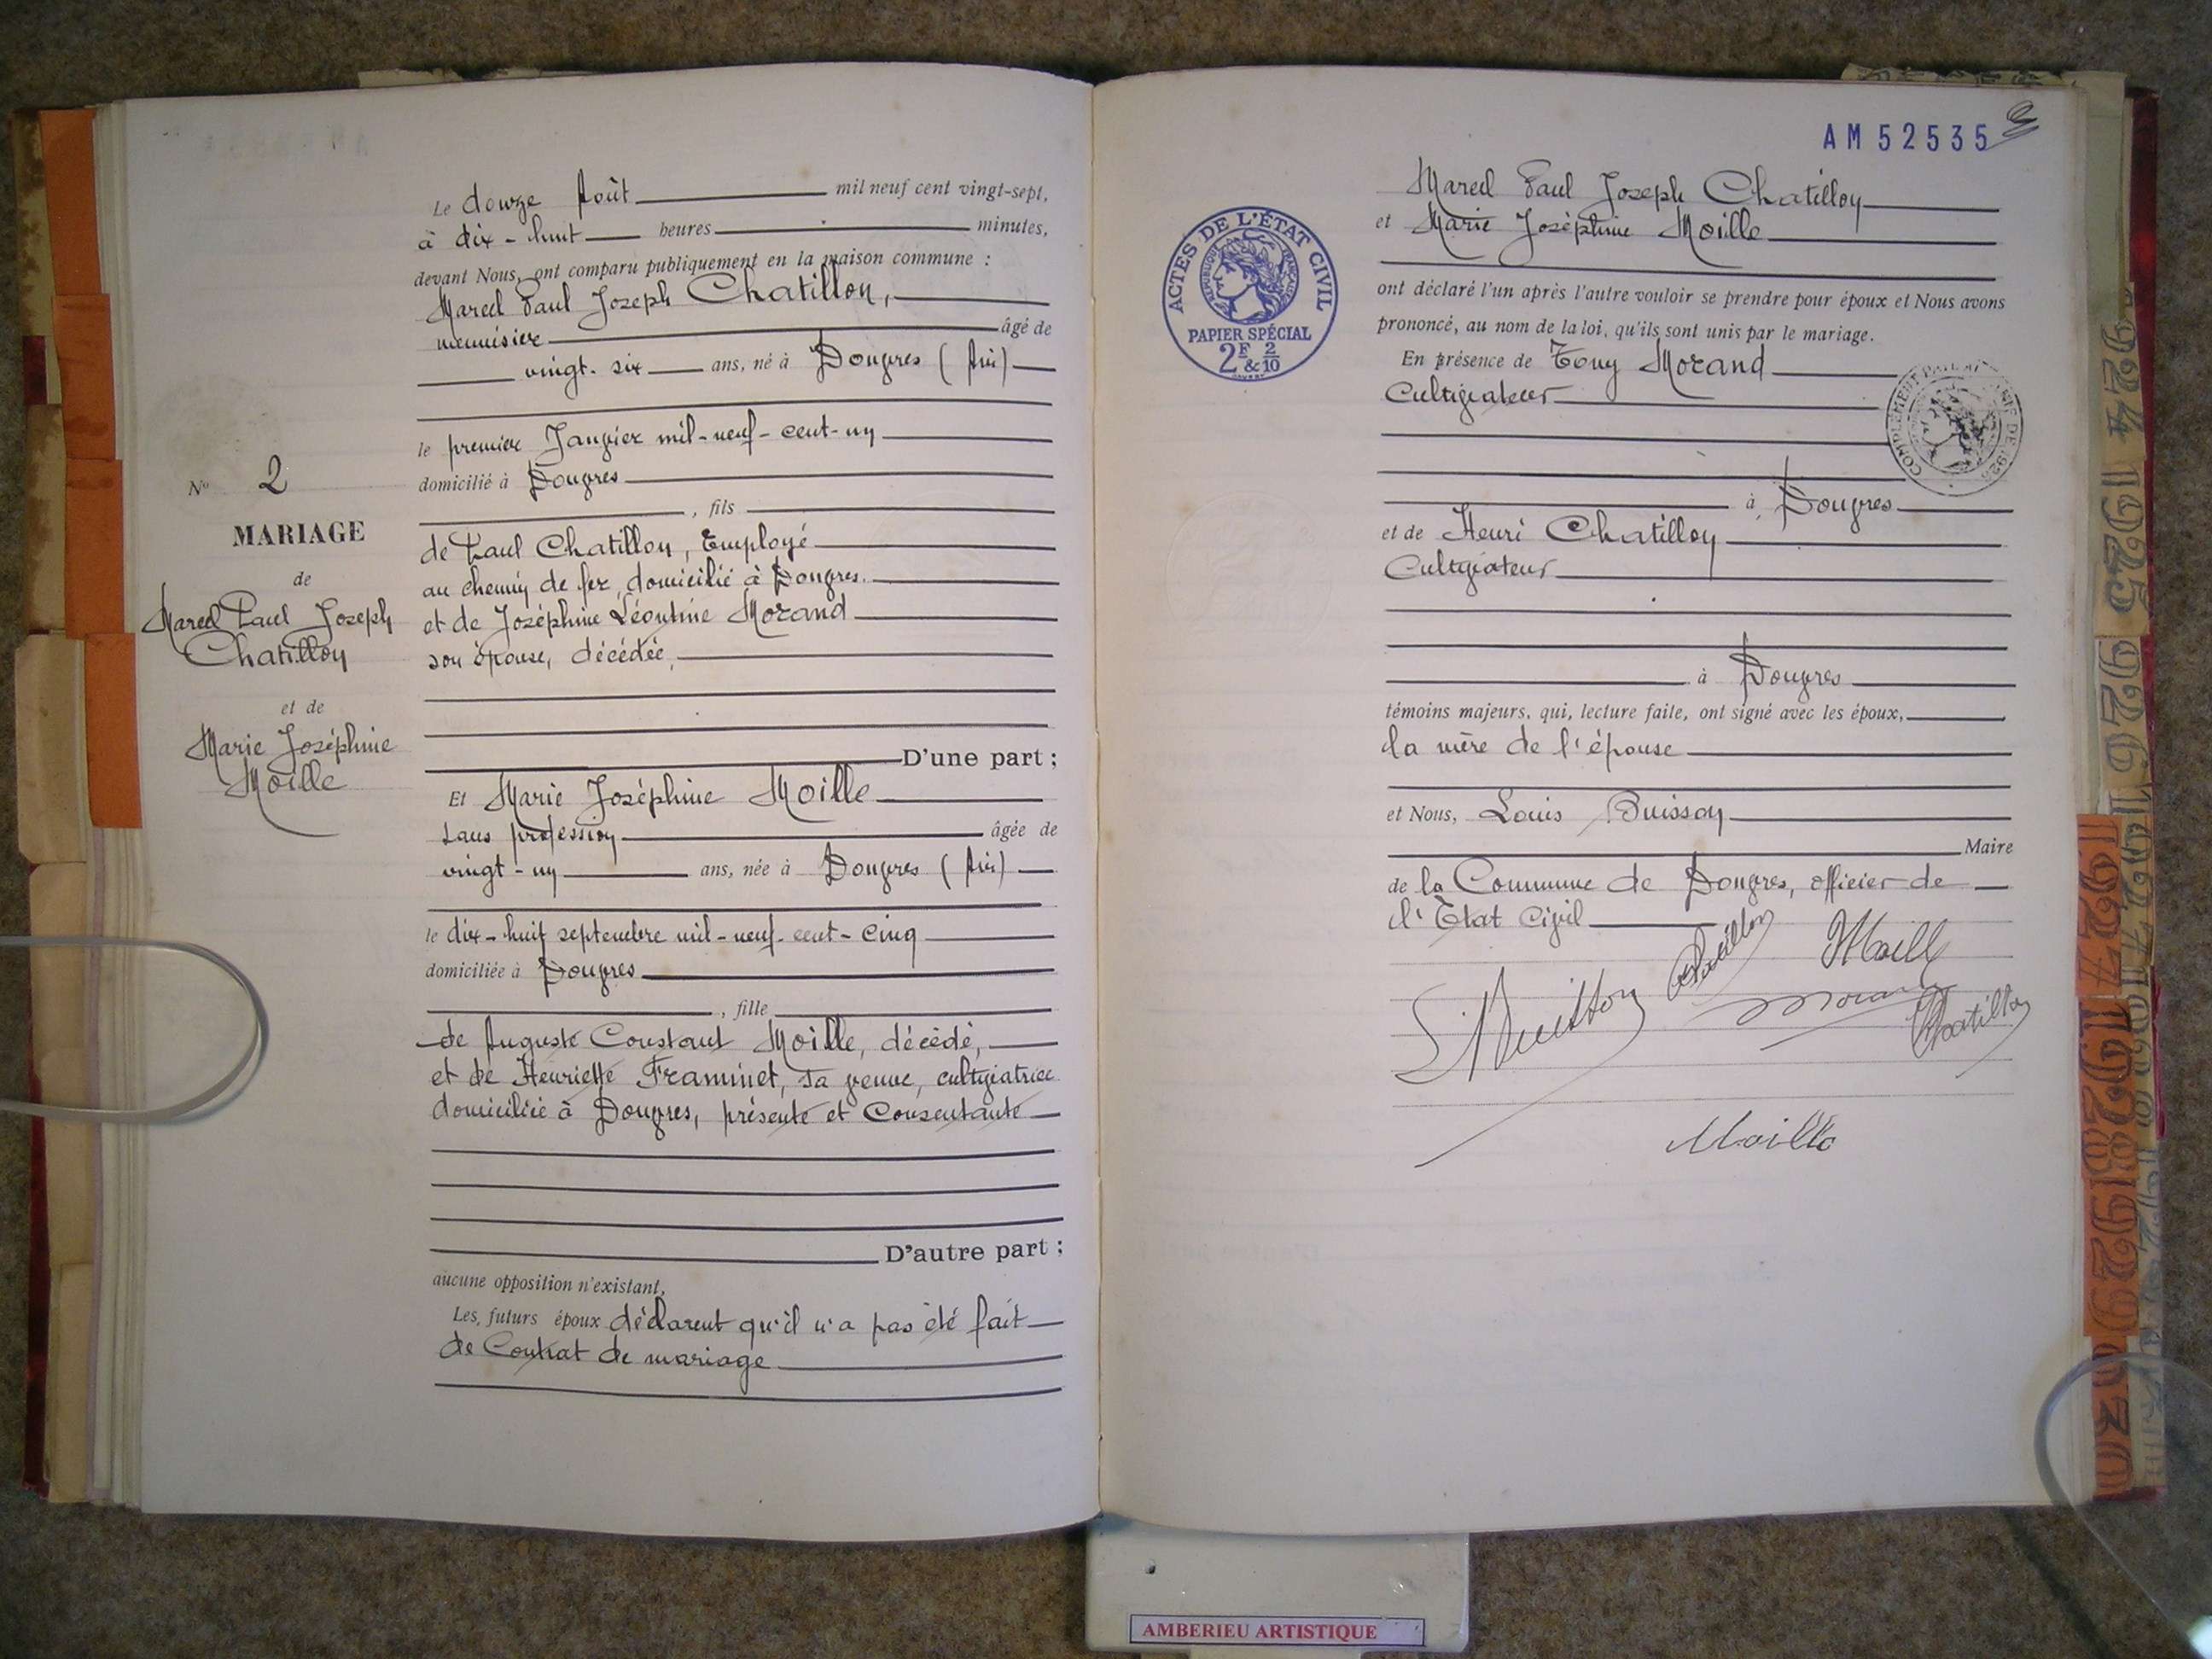 Le douze Août mil neuf cent vingt-sept,
à dix-huit heures minutes,
devant Nous, ont comparu publiquement en la maison commune :
Marcel Paul Joseph Chatillon,
menuisier âgé de
vingt-six ans, né à Douvres (Ain)
le premier Janvier mil-neuf-cent-un
domicilié à Douvres
, fils
de Paul Chatillon, Employé
au chemin de fer, domicilié à Douvres.
et de Joséphine Léontine Morand
son épouse, décédée,
D'une part ;
Nº 2
MARIAGE
de
Marcel Paul Joseph
Chatillon
et de
Marie Joséphine
Moille
Et Marie Joséphine Moille
sans profession âgée de
vingt-un ans, née à Douvres (Ain)
le dix-huit septembre mil-neuf-cent-cinq
domiciliée à Douvres
, fille
de Auguste Constant Moille, décédé,
et de Henriette Framinet, sa veuve, cultivatrice
domiciliée à Douvres, présente et Consentante
D'autre part ;
aucune opposition n'existant,
Les futurs époux déclarent qu'il n'a pas été fait
de Contrat de mariage
AM 52535
Marcel Paul Joseph Chatillon
et Marie Joséphine Moille
ont déclaré l'un après l'autre vouloir se prendre pour époux et Nous avons
prononcé, au nom de la loi, qu'ils sont unis par le mariage.
ACTES DE L'ÉTAT CIVIL
RÉPUBLIQUE FRANÇAISE
PAPIER SPÉCIAL
2F & 2/10
En présence de Tony Morand
Cultivateur
à Douvres
et de Henri Chatillon
Cultivateur
à Douvres
témoins majeurs, qui, lecture faite, ont signé avec les époux,
la mère de l'épouse
et Nous, Louis Buisson
Maire
de la Commune de Douvres, officier de
l'État Civil
Chatillon
Moille
L Buisson
Morand
Chatillon
Moille
1924
1925
1926
1927
1928
1929
1930
AMBERIEU ARTISTIQUE